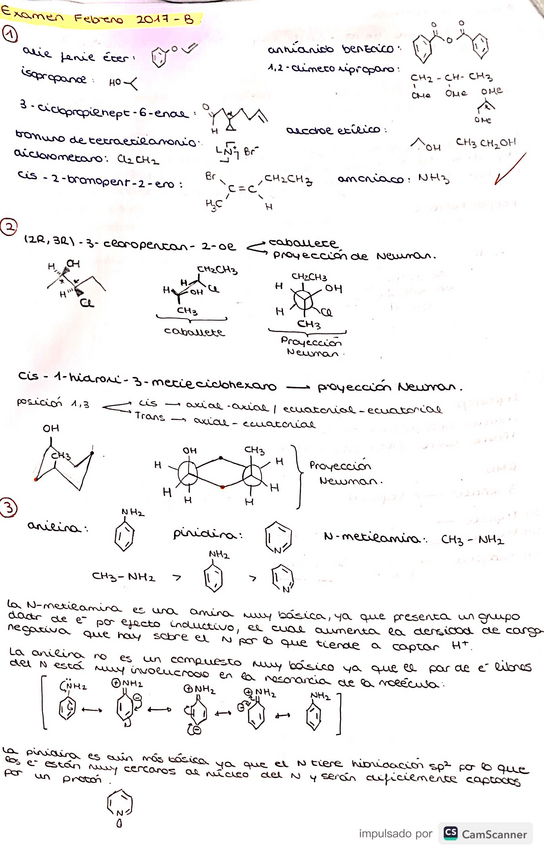 Examen Febrero 2017-B
1
alil fenil éter: O
anhídrido benzoico: O O O
isopropanol: HO
1,2-dimetoxipropano: CH2 - CH - CH3
OMe OMe OMe
OMe
3-ciclopropilhept-6-enal: O H
alcohol etílico: OH CH3CH2OH
bromuro de tetraetilamonio: N Br-
diclorometano: Cl2CH2
cis-2-bromopent-2-eno: Br CH2CH3
C=C
H3C H
amoniaco: NH3
2
(2R,3R)-3-cloropentan-2-ol caballete
proyección de Newman.
H OH
H Cl
CH2CH3
H Cl
H OH
CH3
caballete
CH2CH3
H OH
H Cl
CH3
Proyección
Newman.
cis-1-hidroxi-3-metilciclohexano → proyección Newman.
posición 1,3 cis → axial-axial / ecuatorial-ecuatorial
Trans → axial-ecuatorial
OH
CH3
OH CH3
H H
H H
H H
Proyección
Newman.
3
anilina: NH2
piridina: N
N-metilamina: CH3-NH2
CH3-NH2 > NH2 > N
La N-metilamina es una amina muy básica, ya que presenta un grupo
dador de e- por efecto inductivo, el cual aumenta la densidad de carga
negativa que hay sobre el N por lo que tiende a captar H+.
La anilina no es un compuesto muy básico ya que el par de e- libres
del N está muy involucrado en la resonancia de la molécula:
NH2 ⊕NH2 ⊕NH2 ⊕NH2 NH2
La piridina es aún más básica ya que el N tiene hibridación sp2 por lo que
los e- están muy cercanos al núcleo del N y serán dificilmente captados
por un protón.
N
impulsado por CS CamScanner